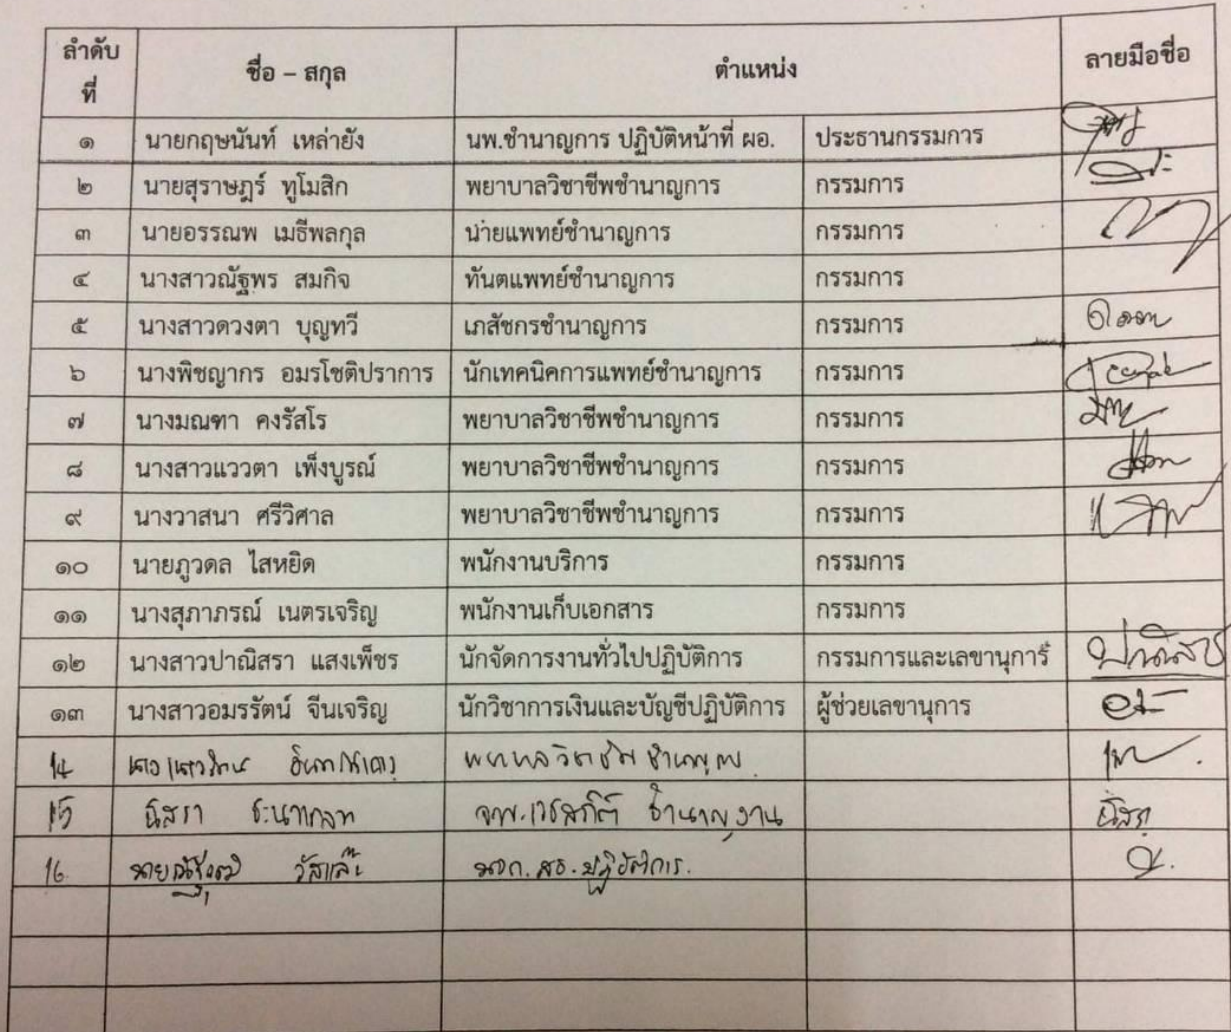 ลำดับที่ ชื่อ – สกุล ตำแหน่ง ลายมือชื่อ
๑ นายกฤษนันท์ เหล่ายัง นพ.ชำนาญการ ปฏิบัติหน้าที่ ผอ. ประธานกรรมการ
๒ นายสุราษฎร์ ทูโมสิก พยาบาลวิชาชีพชำนาญการ กรรมการ
๓ นายอรรณพ เมธีพลกุล น่ายแพทย์ชำนาญการ กรรมการ
๔ นางสาวณัฐพร สมกิจ ทันตแพทย์ชำนาญการ กรรมการ
๕ นางสาวดวงตา บุญทวี เภสัชกรชำนาญการ กรรมการ
๖ นางพิชญากร อมรโชติปราการ นักเทคนิคการแพทย์ชำนาญการ กรรมการ
๗ นางมณฑา คงรัสโร พยาบาลวิชาชีพชำนาญการ กรรมการ
๘ นางสาวแววตา เพ็งบูรณ์ พยาบาลวิชาชีพชำนาญการ กรรมการ
๙ นางวาสนา ศรีวิศาล พยาบาลวิชาชีพชำนาญการ กรรมการ
๑๐ นายภูวดล ไสหยิด พนักงานบริการ กรรมการ
๑๑ นางสุภาภรณ์ เนตรเจริญ พนักงานเก็บเอกสาร กรรมการ
๑๒ นางสาวปาณิสรา แสงเพ็ชร นักจัดการงานทั่วไปปฏิบัติการ กรรมการและเลขานุการ์
๑๓ นางสาวอมรรัตน์ จีนเจริญ นักวิชาการเงินและบัญชีปฏิบัติการ ผู้ช่วยเลขานุการ
14 พยาบาลวิชาชีพชำนาญการ
15 นิสรา จพ.เวชสถิติ ชำนาญงาน นิสรา
16. นายณัฐวุฒิ นวก.สธ.ปฏิบัติการ.